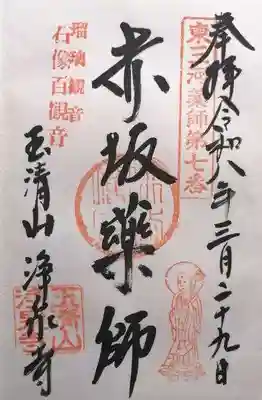 奉拝令和八年三月二十九日
東三河薬師第七番
赤坂薬師
瑠璃観音
石像百観音
玉清山 浄泉寺